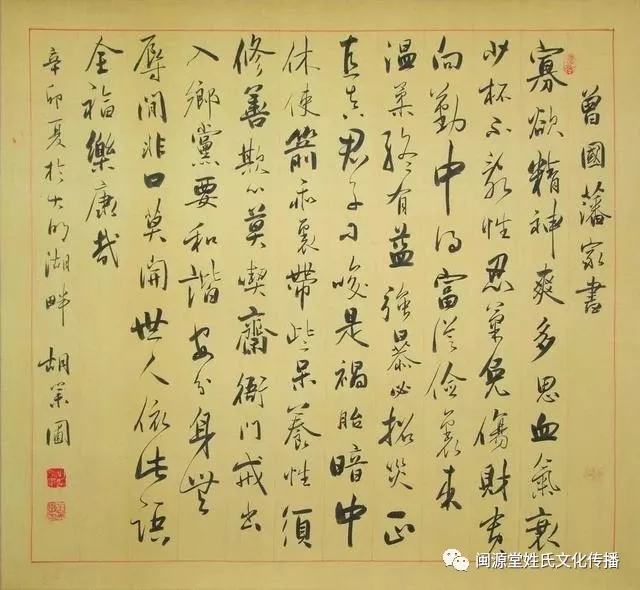 曾國藩家書
寡欲精神爽多思血氣衰
少杯不亂性忍氣免傷財貴
向勤中得富從儉裏來
溫柔終有益強暴必招災正
直真君子刁唆是禍胎暗中
休使箭乖裏帶些呆養性須
修善欺心莫喫齋衙門戒出
入鄉黨要和諧安分身無
辱閒非口莫開世人依此語
全福樂康哉
辛卯夏於大明湖畔 胡
闽源堂姓氏文化传播